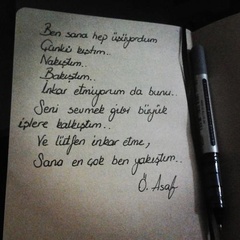 Ben sana hep üşüyordum
Çünkü kıştım..
Nakıştım..
Bakıştım..
İnkar etmiyorum da bunu..
Seni sevmek gibi büyük
işlere kalkıştım..
Ve lütfen inkar etme,
Sana en çok ben yakıştım..
Ö. Asaf